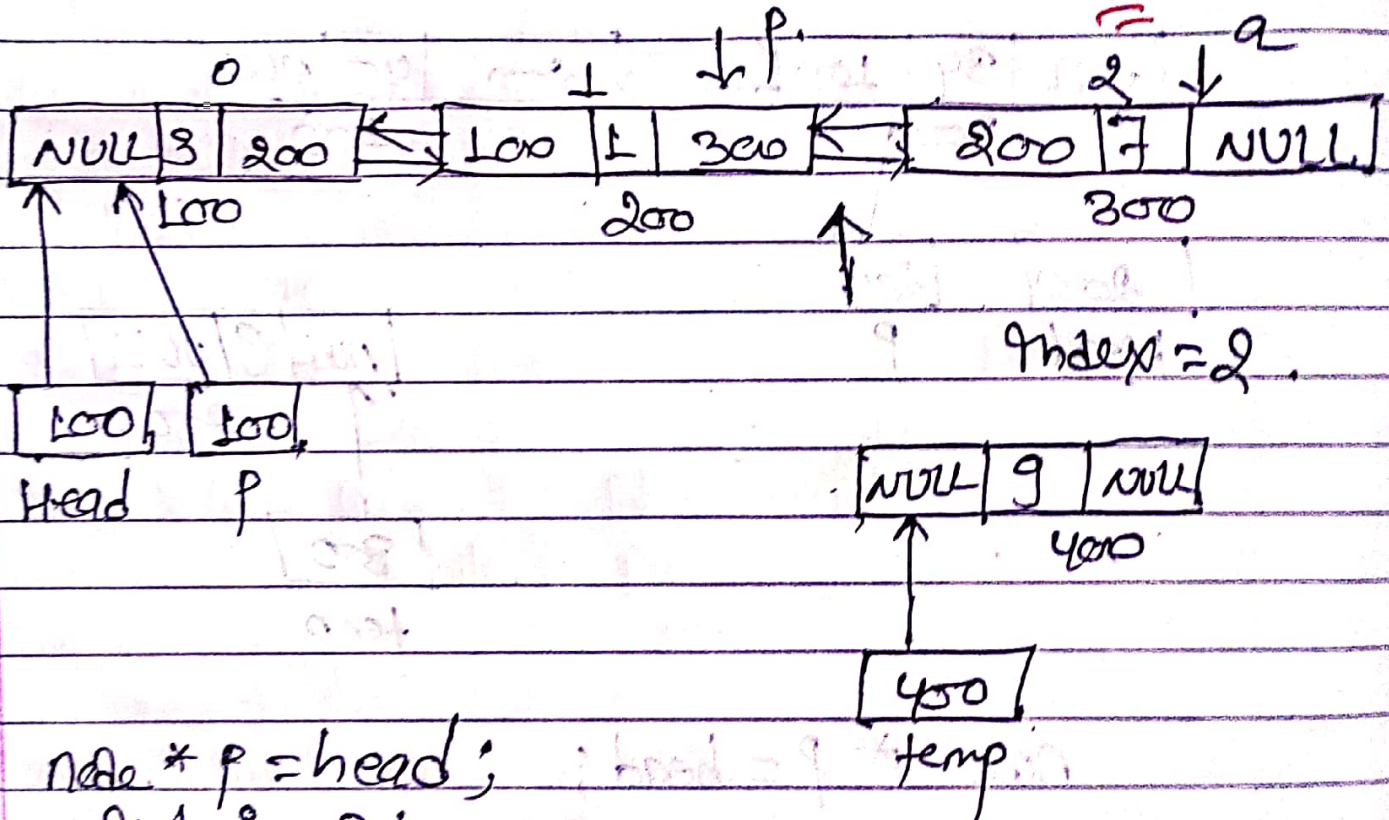 p.
2 a
0 1
NULL 3 200 100 1 300 200 7 NULL
100 200 300
Index = 2.
100 100
NULL 9 NULL
Head p
400
400
temp
node * p = head;